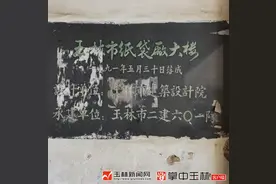 玉林市纸袋厂大楼
一九九一年五月三十日落成
设计单位：玉林市建築設計院
承建单位：玉林市二建六〇一队
玉林新闻网
掌中玉林